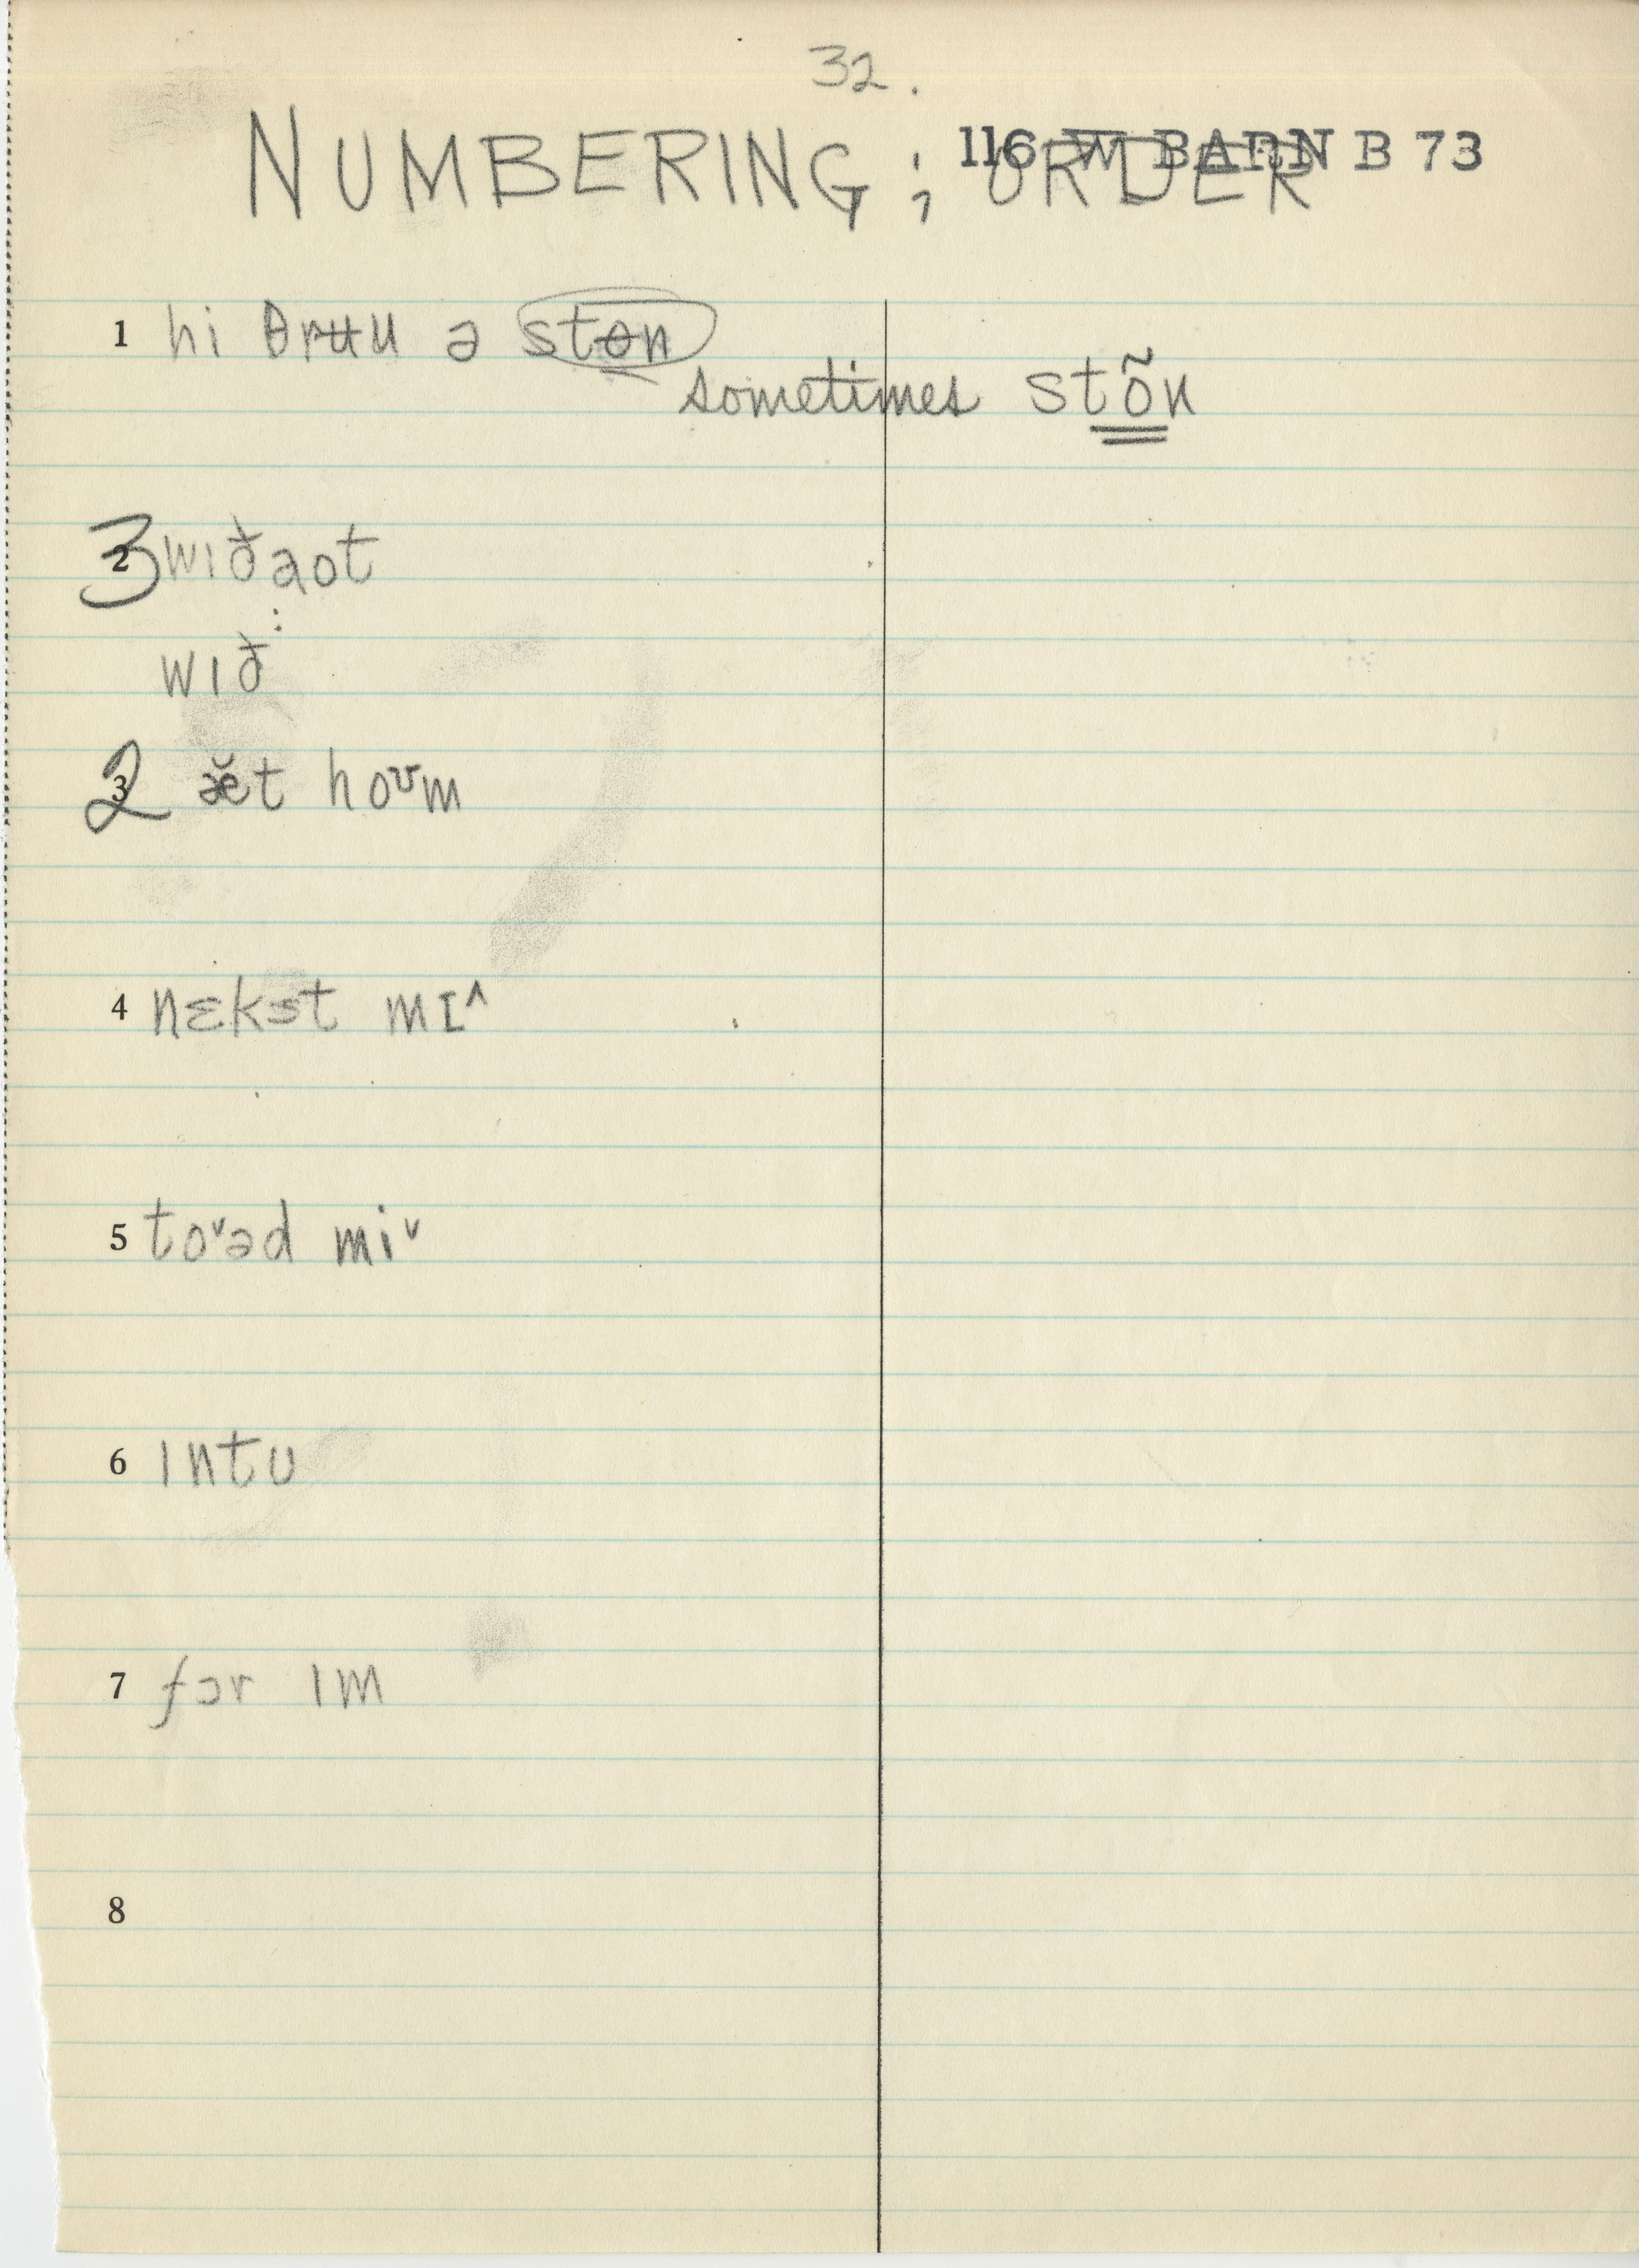 32.
NUMBERING ; ORDER
116 W BARN B 73
1 hi θrʉu ə stɵn
sometimes stõn
3 2 wıðaot
wıð
2 3 æ̆t hoᴜm
4 nɛkst mɪ^
5 to˅əd mi˅
6 ıntu
7 fɔr ım
8